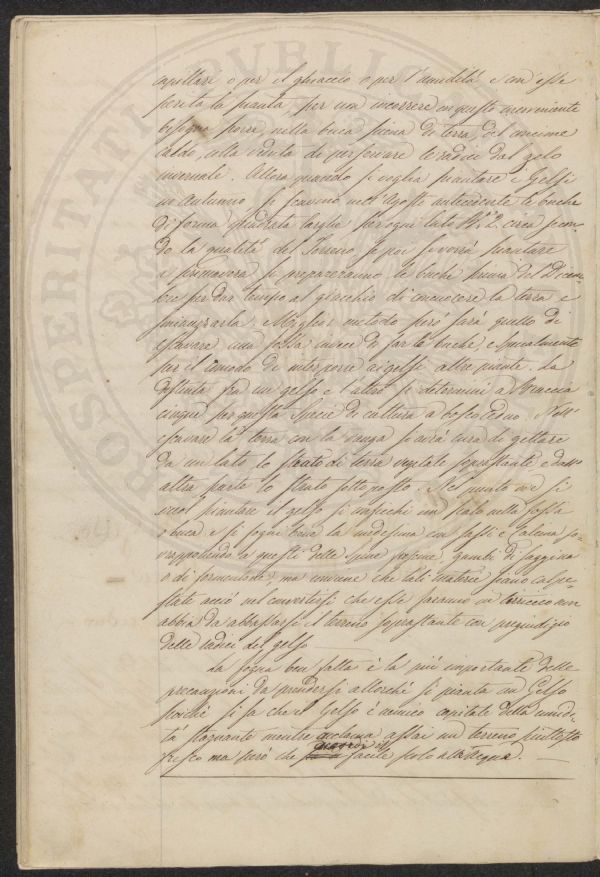 capillare o per il ghiaccio o per l'umidità e con esse
perita la pianta, per non incorrere in questo inconveniente
bisogna porre, nella buca piena di terra, del concime
caldo, alla veduta di preservare le radici dal gelo
invernale. Allora quando si voglia piantare i Gelsi
in Autunno, si scavino nell'Agosto antecedente le buche
di forma quadrata larghe per ogni lato Bª 2. circa secon-
do la qualità del Terreno se poi si vorrà piantare
a primavera si prepareranno le buche prima del Dicem-
bre per dar tempo al ghiacchio di cuocere la terra e
smagrarla. Miglior metodo però sarà quello di
escavare una fossa invece di far le buche e specialmente
per il comodo di interporre ai gelsi altre piante. La
distanza fra un gelso e l'altro si determini a Braccia
cinque per questa specie di cultura a bosco ceduo. Nell'
escavare la terra con la vanga si avrà cura di gettare
da un lato lo strato di terra vegetale soprastante e dall'
altra parte lo strato sottoposto. Nel punto ove si
vuol piantare il gelso si infichi un palo nella fossa
o buca e si fogni bene la medesima con sassi e calcina so-
vrapponendo a questi delle spine, gambi di saggina
o di formentone ma conviene che tali materie siano calpe-
state acciò nel convertirsi che esse faranno in terriccio non
abbia da abbassarsi il terreno soprastante con pregiudizio
delle radici del gelso
La fogna ben fatta è la più importante delle
precauzioni da prendersi allorchè si pianta un Gelso
poichè si sa che il Gelso è nemico capitale della umidi-
tà stagnante mentre reclama assai un terreno piuttosto
fresco ma però che facile scolo alle acque.